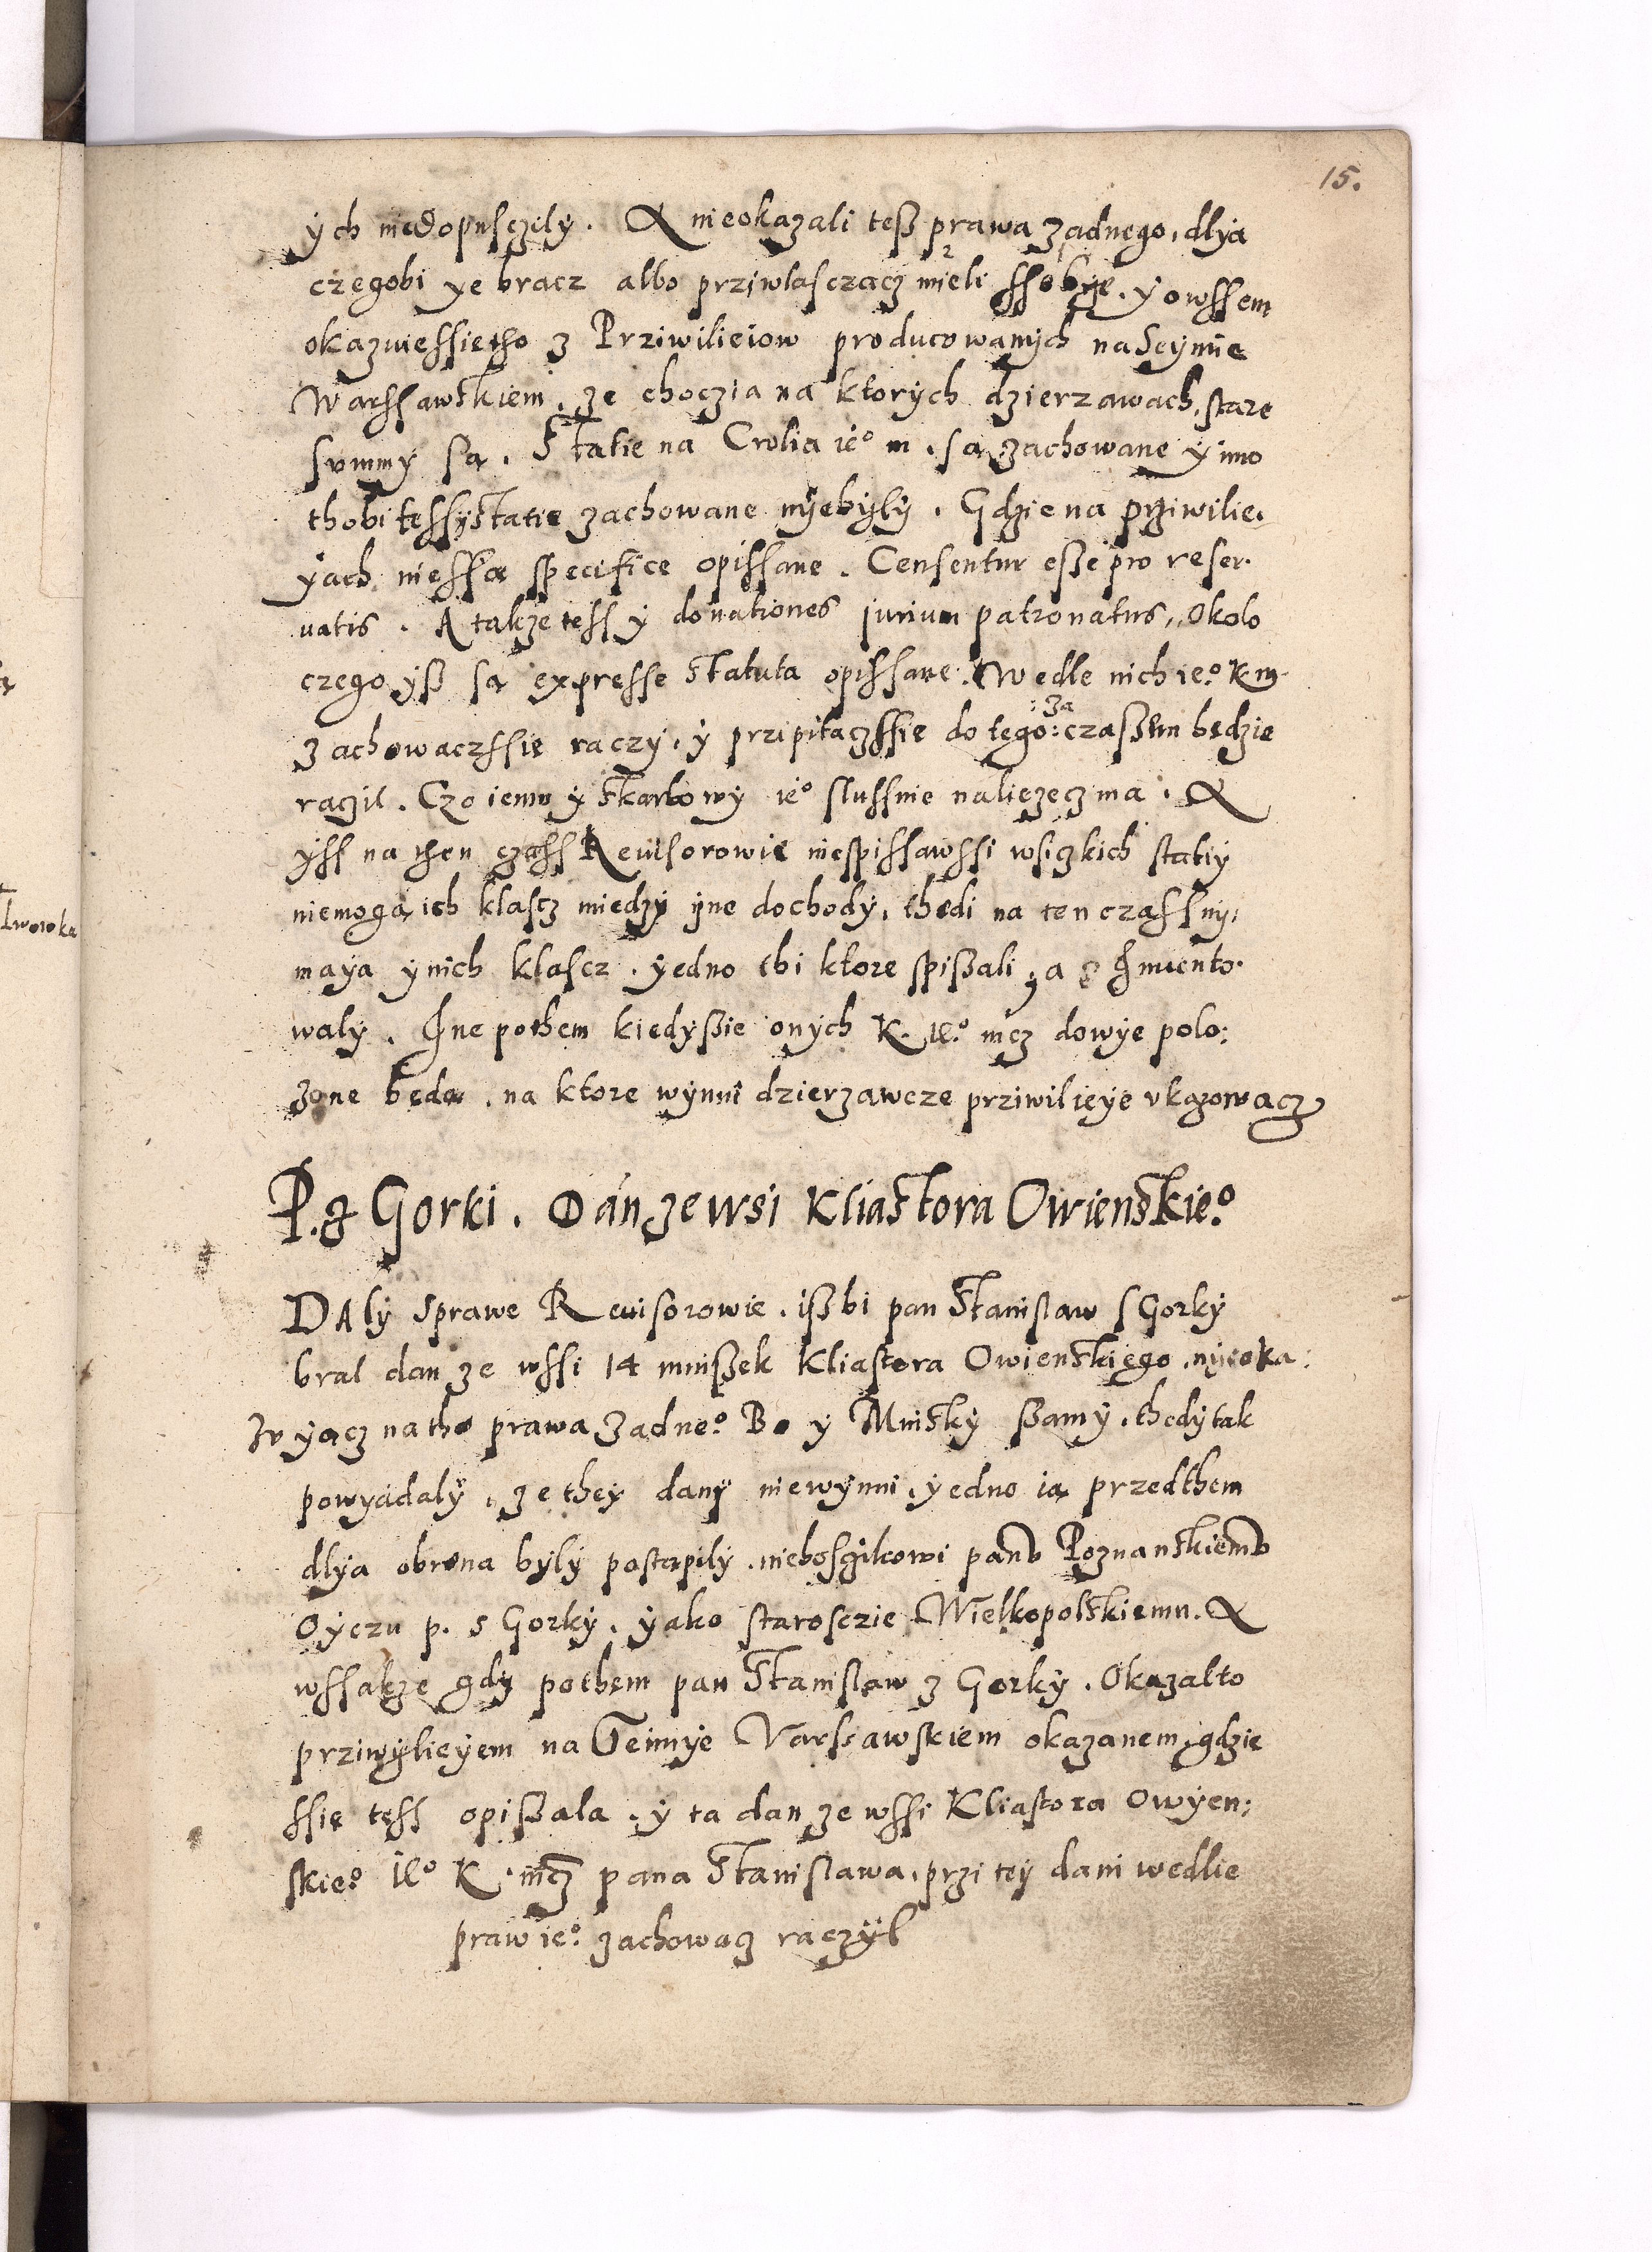 15.
ych niedopusczily. A nieokazali tesz prawa zadnego, dlya
czegobi ye bracz albo prziwlasczacz mieli ssobye. y owssem
okazuiessietho z Prziwilieiow producowanych na Seymie
Warssawskiem, ze choczia na ktorych dzierzawach, stare
summy sa. Statie na Crolia ieº m. sa zachowane y imo
thobi tessy statie zachowane nyebyly. Gdzie na prziwilie,
yach niessa specifice opissane. Censentur esse pro reser.
uatis. A takze tess y donationes jurium patronatus, Okolo
czego ysz sa expresse statuta opissane. Wedle nich ieº K m.
zachowaczssie raczy, y przipitaczssie do tego :za: czassem bedzie
raczil. Czo iemu y skarbowy ieº slussnie naliezecz ma. A
yss na then czass Reuisorowie niespissawssi wsiczkich statiy
niemoga ich klascz miedzy yne dochody, thedi na ten czass ny,
maya y nich klascz. yedno thi ktore spiszali, a Jnuento.
waly. Jne pothem kiedyszie onych K. Ieº mcz dowye polo:
zone beda. na ktore wynni dzierzawcze prziwilieye vkazowacz
P. z Gorki. Dan ze wsi Kliastora Owienskieº
DAly sprawe Reuisorowie. iszbi pan Stanislaw s Gorky
bral dan ze wssi 14 mniszek Kliastora Owienskiego, nyeoka:
zvyacz na tho prawa zadneº Bo y Mnisky szamy, thedy tak
powyadaly, ze they dany niewynni, yedno ia przedthem
dlya obrona byly postapily. nieboszczikowi panu Poznanskiemu
Oyczu p. s Gorky. yako starosczie Wielkopolskiemu. A
wssakze gdy pothem pan Stanislaw z Gorky. Okazal to
prziwylieyem na Seimye Varssawskiem okazanem, gdzie
ssie tess opiszala. y ta dan ze wssi Kliastora Owyen:
skieº Ieº K. mcz pana Stanislawa. przi tey dani wedlie
praw ieº zachowacz raczyl